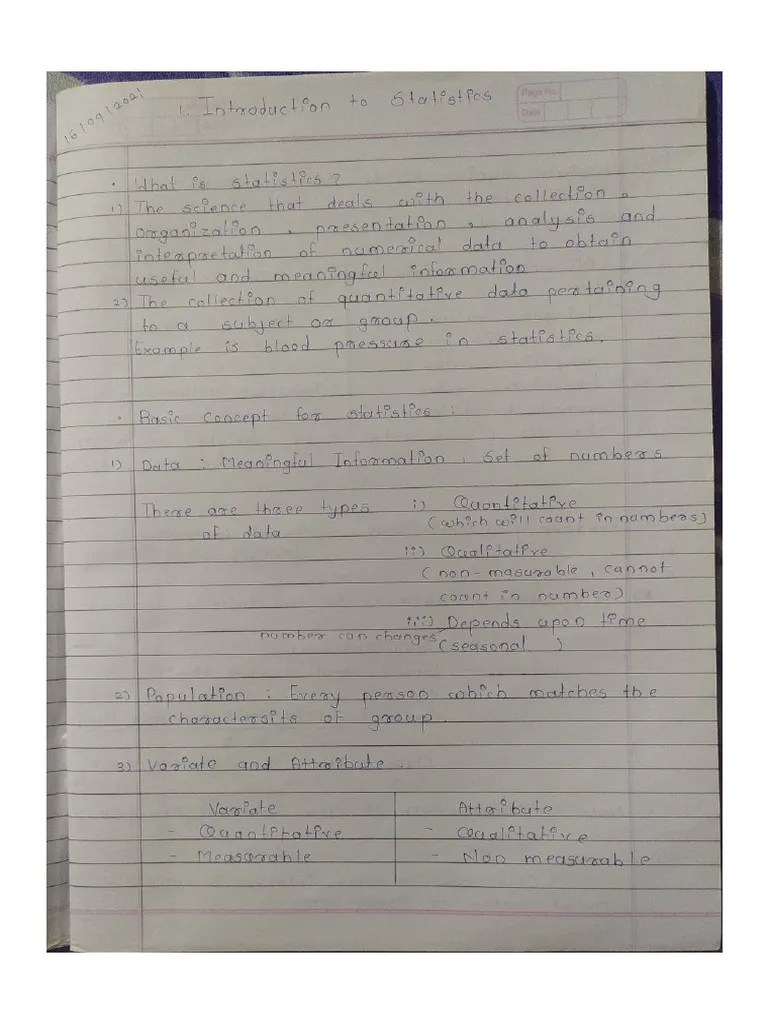 16/09/2021
1. Introduction to Statistics
Page No.
Date
• What is statistics?
1) The science that deals with the collection,
organization, presentation, analysis and
interpretation of numerical data to obtain
useful and meaningful information.
2) The collection of quantitative data pertaining
to a subject or group.
Example is blood pressure in statistics.
• Basic Concept for statistics:
1) Data: Meaningful Information, set of numbers
There are three types i) Quantitative
(which will count in numbers)
of data
ii) Qualitative
(non-masurable, cannot
count in number)
iii) Depends upon time
number can changes (seasonal )
2) Population: Every person which matches the
charactersits of group.
3) Variate and Attribute.
Variate Attribute
- Quantitative - Qualitative
- Measurable - Non measurable